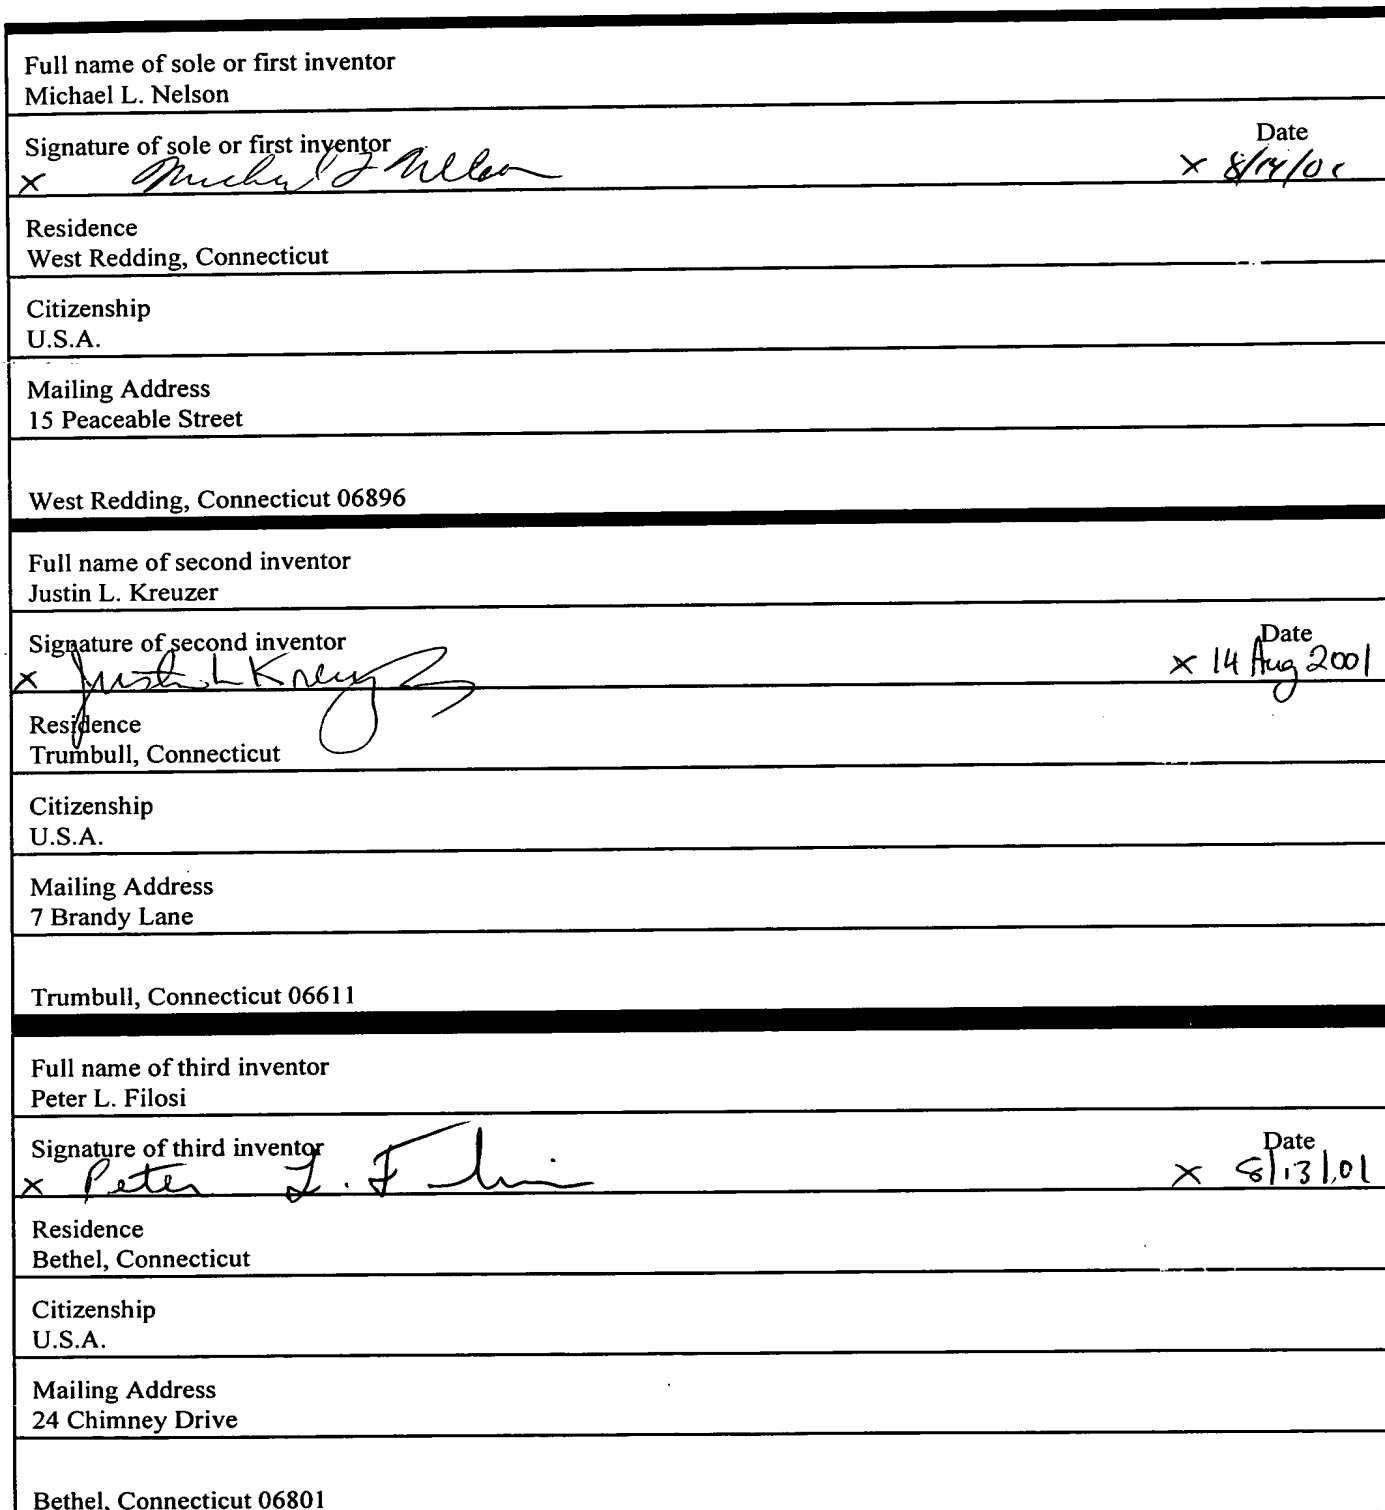 Full name of sole or first inventor
Michael L. Nelson
Signature of sole or first inventor Date
x Michael L Nelson x 8/14/01
Residence
West Redding, Connecticut
Citizenship
U.S.A.
Mailing Address
15 Peaceable Street
West Redding, Connecticut 06896
Full name of second inventor
Justin L. Kreuzer
Signature of second inventor Date
x Justin L Kreuzer x 14 Aug 2001
Residence
Trumbull, Connecticut
Citizenship
U.S.A.
Mailing Address
7 Brandy Lane
Trumbull, Connecticut 06611
Full name of third inventor
Peter L. Filosi
Signature of third inventor Date
x Peter L. Filosi x 8/13/01
Residence
Bethel, Connecticut
Citizenship
U.S.A.
Mailing Address
24 Chimney Drive
Bethel, Connecticut 06801